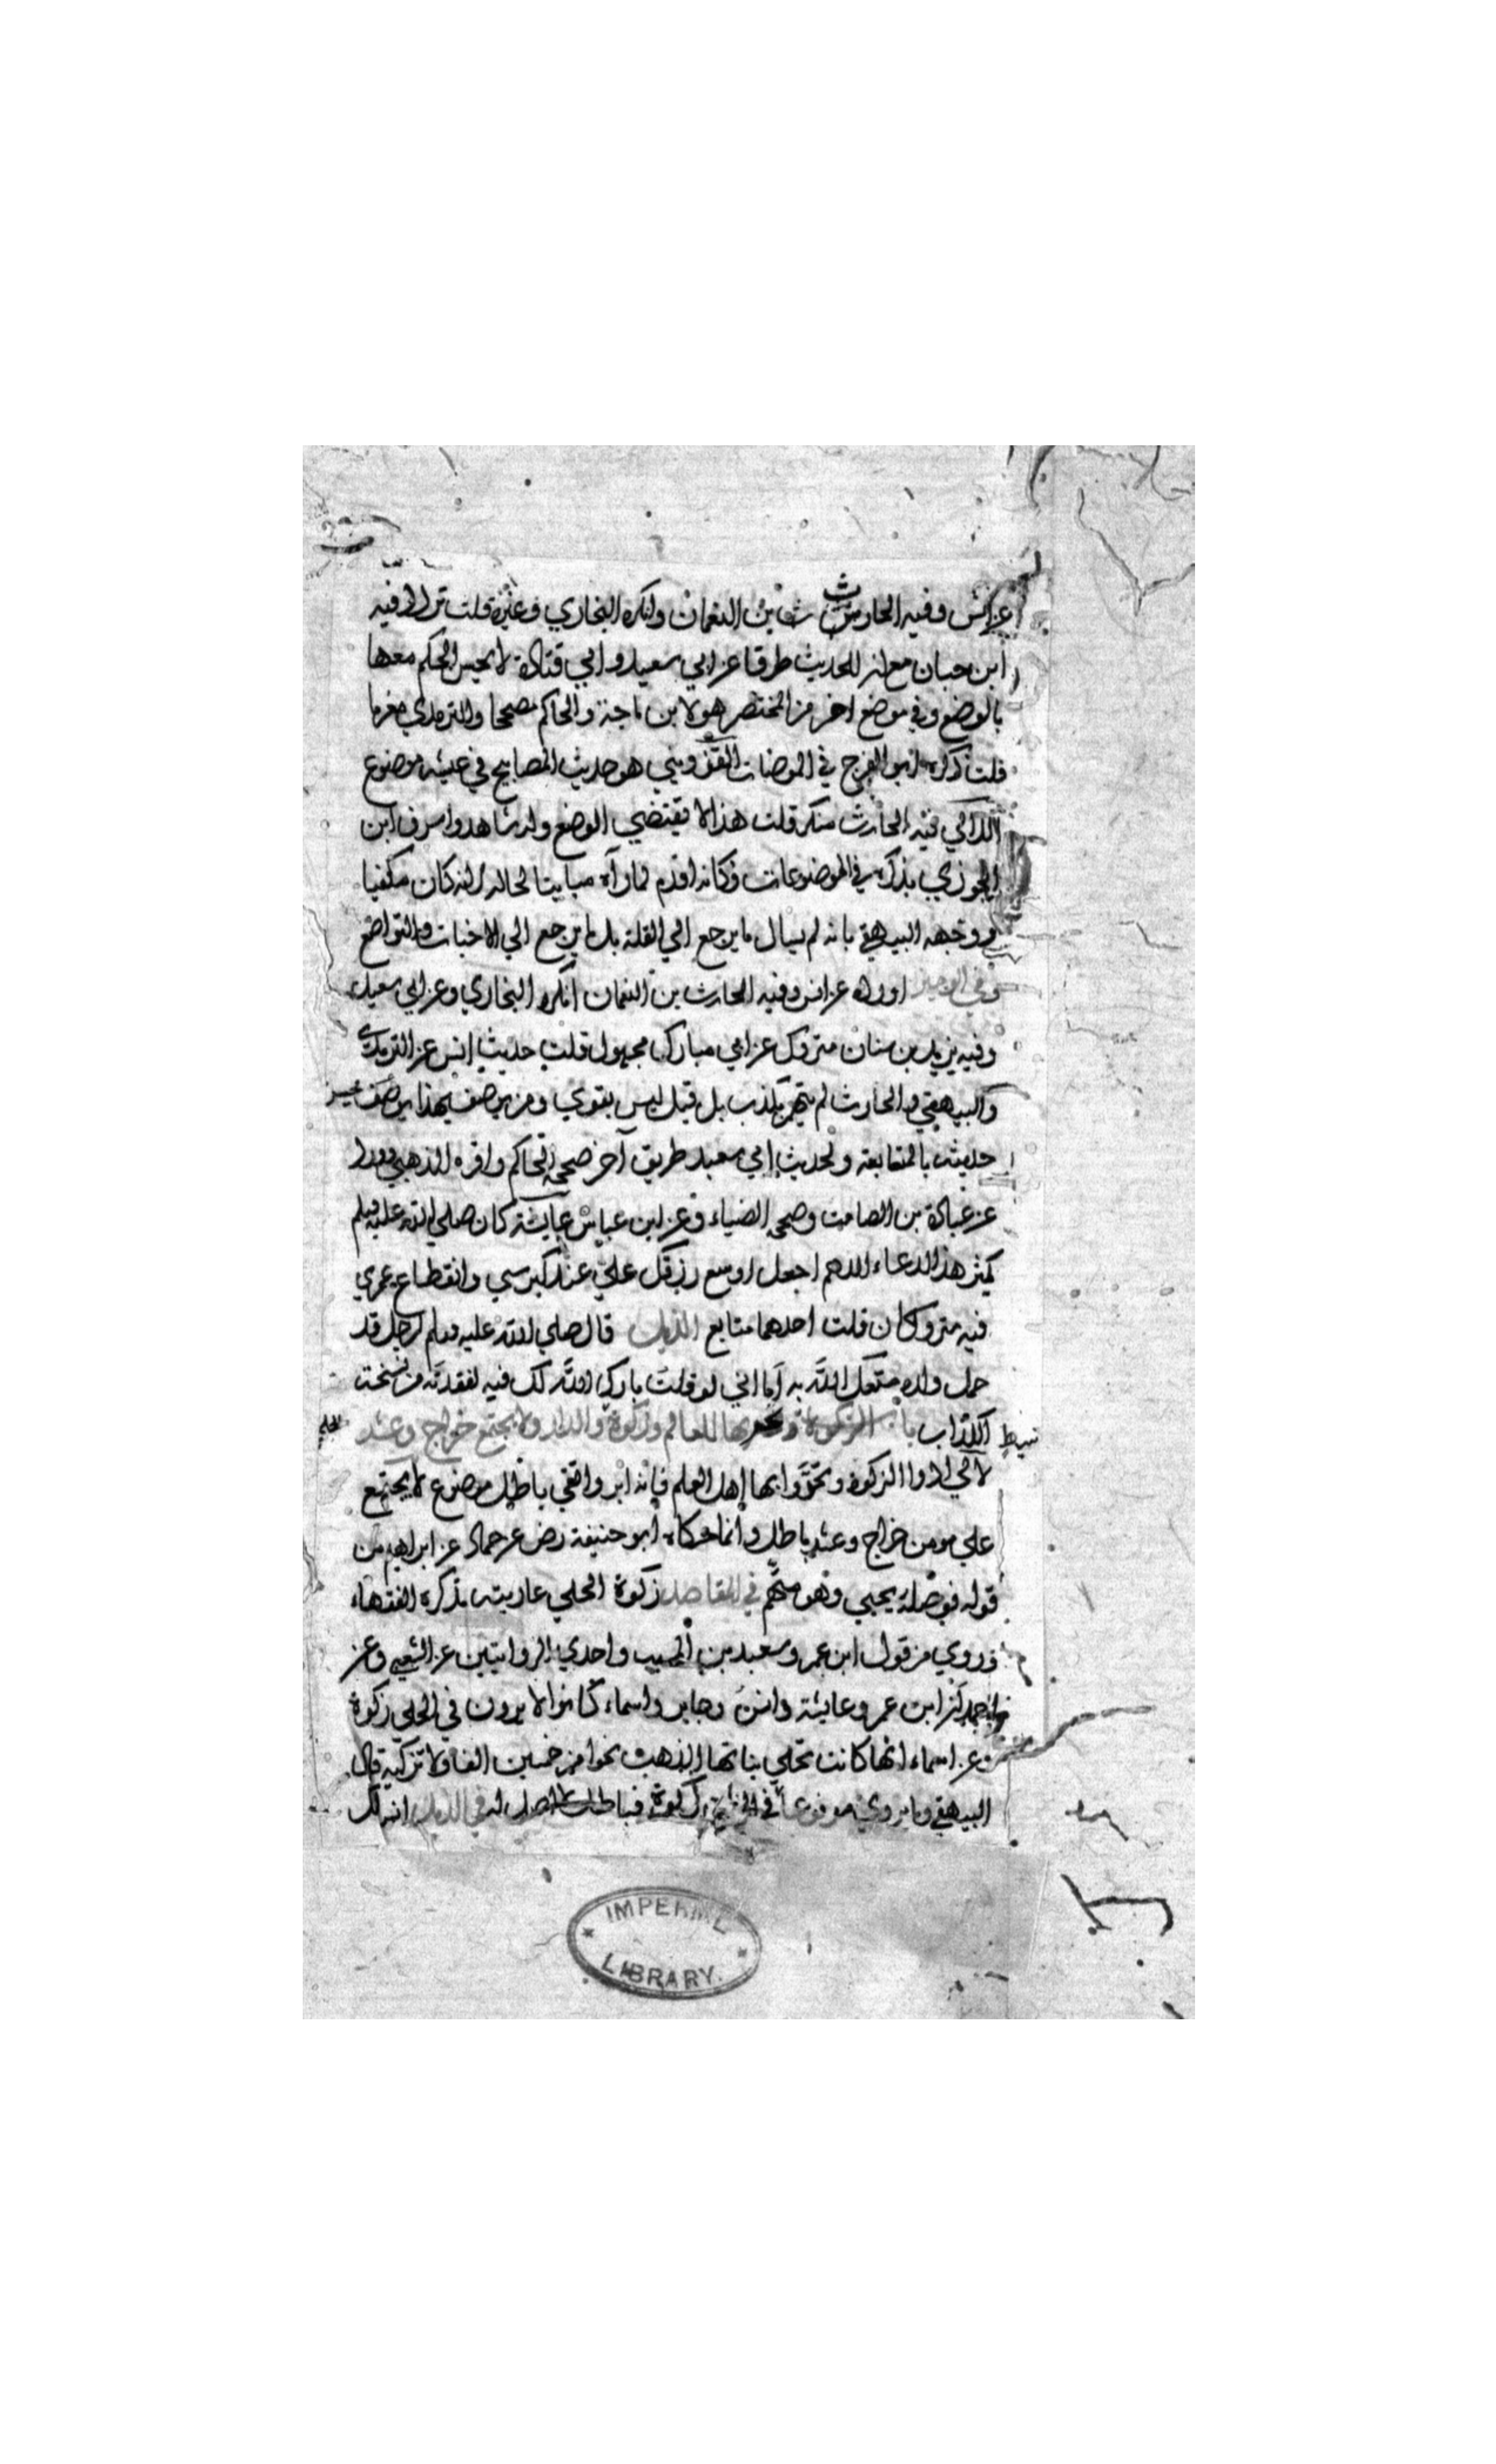 عن انس وفيه الحارث بن النعمان وانكره البخاري وغيره قلت
ابن حبان مع ان للحديث طرقا عن ابي سعيد وابي قتادة لا يحسن الحكم معها
بالوضع وفي موضع اخر من المختصر هو لابن ماجة والحاكم مصححا والترمذي مغربا
قلت ذكره ابو الفرج في الموضات القزويني هو حديث المصابيح في عيشه موضوع
فيه الحارث منكر قلت هذا لا يقتضي الوضع وله شاهد واسرف ابن
الجوزي بذكره في الموضوعات فكانه اقدم لما رآه مباينا لحاله لانه كان مكفيا
ووجهه البيهقي بانه لم يسال ما يرجع الي القلة بل ما يرجع الي الاخبات والتواضع
وفي الوجيز اورده عن انس وفيه الحارث بن النعمان انكره البخاري وعن ابي سعيد
وفيه يزيد بن سنان متروك عن ابي مبارك مجهول قلت حديث انس عن الترمذي
والبيهقي والحارث لم يتهم بكذب بل قيل ليس بقوي ومن يوصف بهذا يوصف
حديثه بالمتابعة ولحديث ابي سعيد طريق آخر صححه الحاكم واقره الذهبي وورد
عن عبادة بن الصامت وصححه الضياء وعن ابن عباس عايشة كان صلي الله عليه وسلم
يكثر هذا الدعاء اللهم اجعل اوسع رزقك علي عند كبر سني وانقطاع عمري
فيه متروكان قلت احدهما متابع الذيل قال صلي الله عليه وسلم لرجل قد
حمل ولده متعك الله به أما اني لو قلت بارك الله لك فيه لفقدته من نسخت
نبيط الكذاب باب الزكوة وتحريها للعالم وزكوة والدار ولا يجتمع خراج وعشر الحلي
لالي ادوا الزكوة وتحروا بها اهل العلم فانه ابر واتقي باطل موضوع لا يجتمع
علي مومن خراج وعشر باطل وانما حكاه ابو حنيفة رض عن حماد عن ابراهيم من
قوله فوصله يحيي وهو متهم في المقاصد زكوة الحلي عاريته يذكره الفقهاء
وروي من قول ابن عمر وسعيد بن المسيب واحدي الروايتين عن الشعبي وعن
ابن عمر وعايشة وانس وجابر واسماء كانوا لا يرون في الحلي زكوة
وعن اسماء انها كانت تحلي بناتها الذهب نحوا من خمسين الفا ولا تزكيه قال
البيهقي وما يروي مرفوعا في الحلي زكوة فباطل لا اصل له في الذيل انس لك
IMPERIAL
LIBRARY.